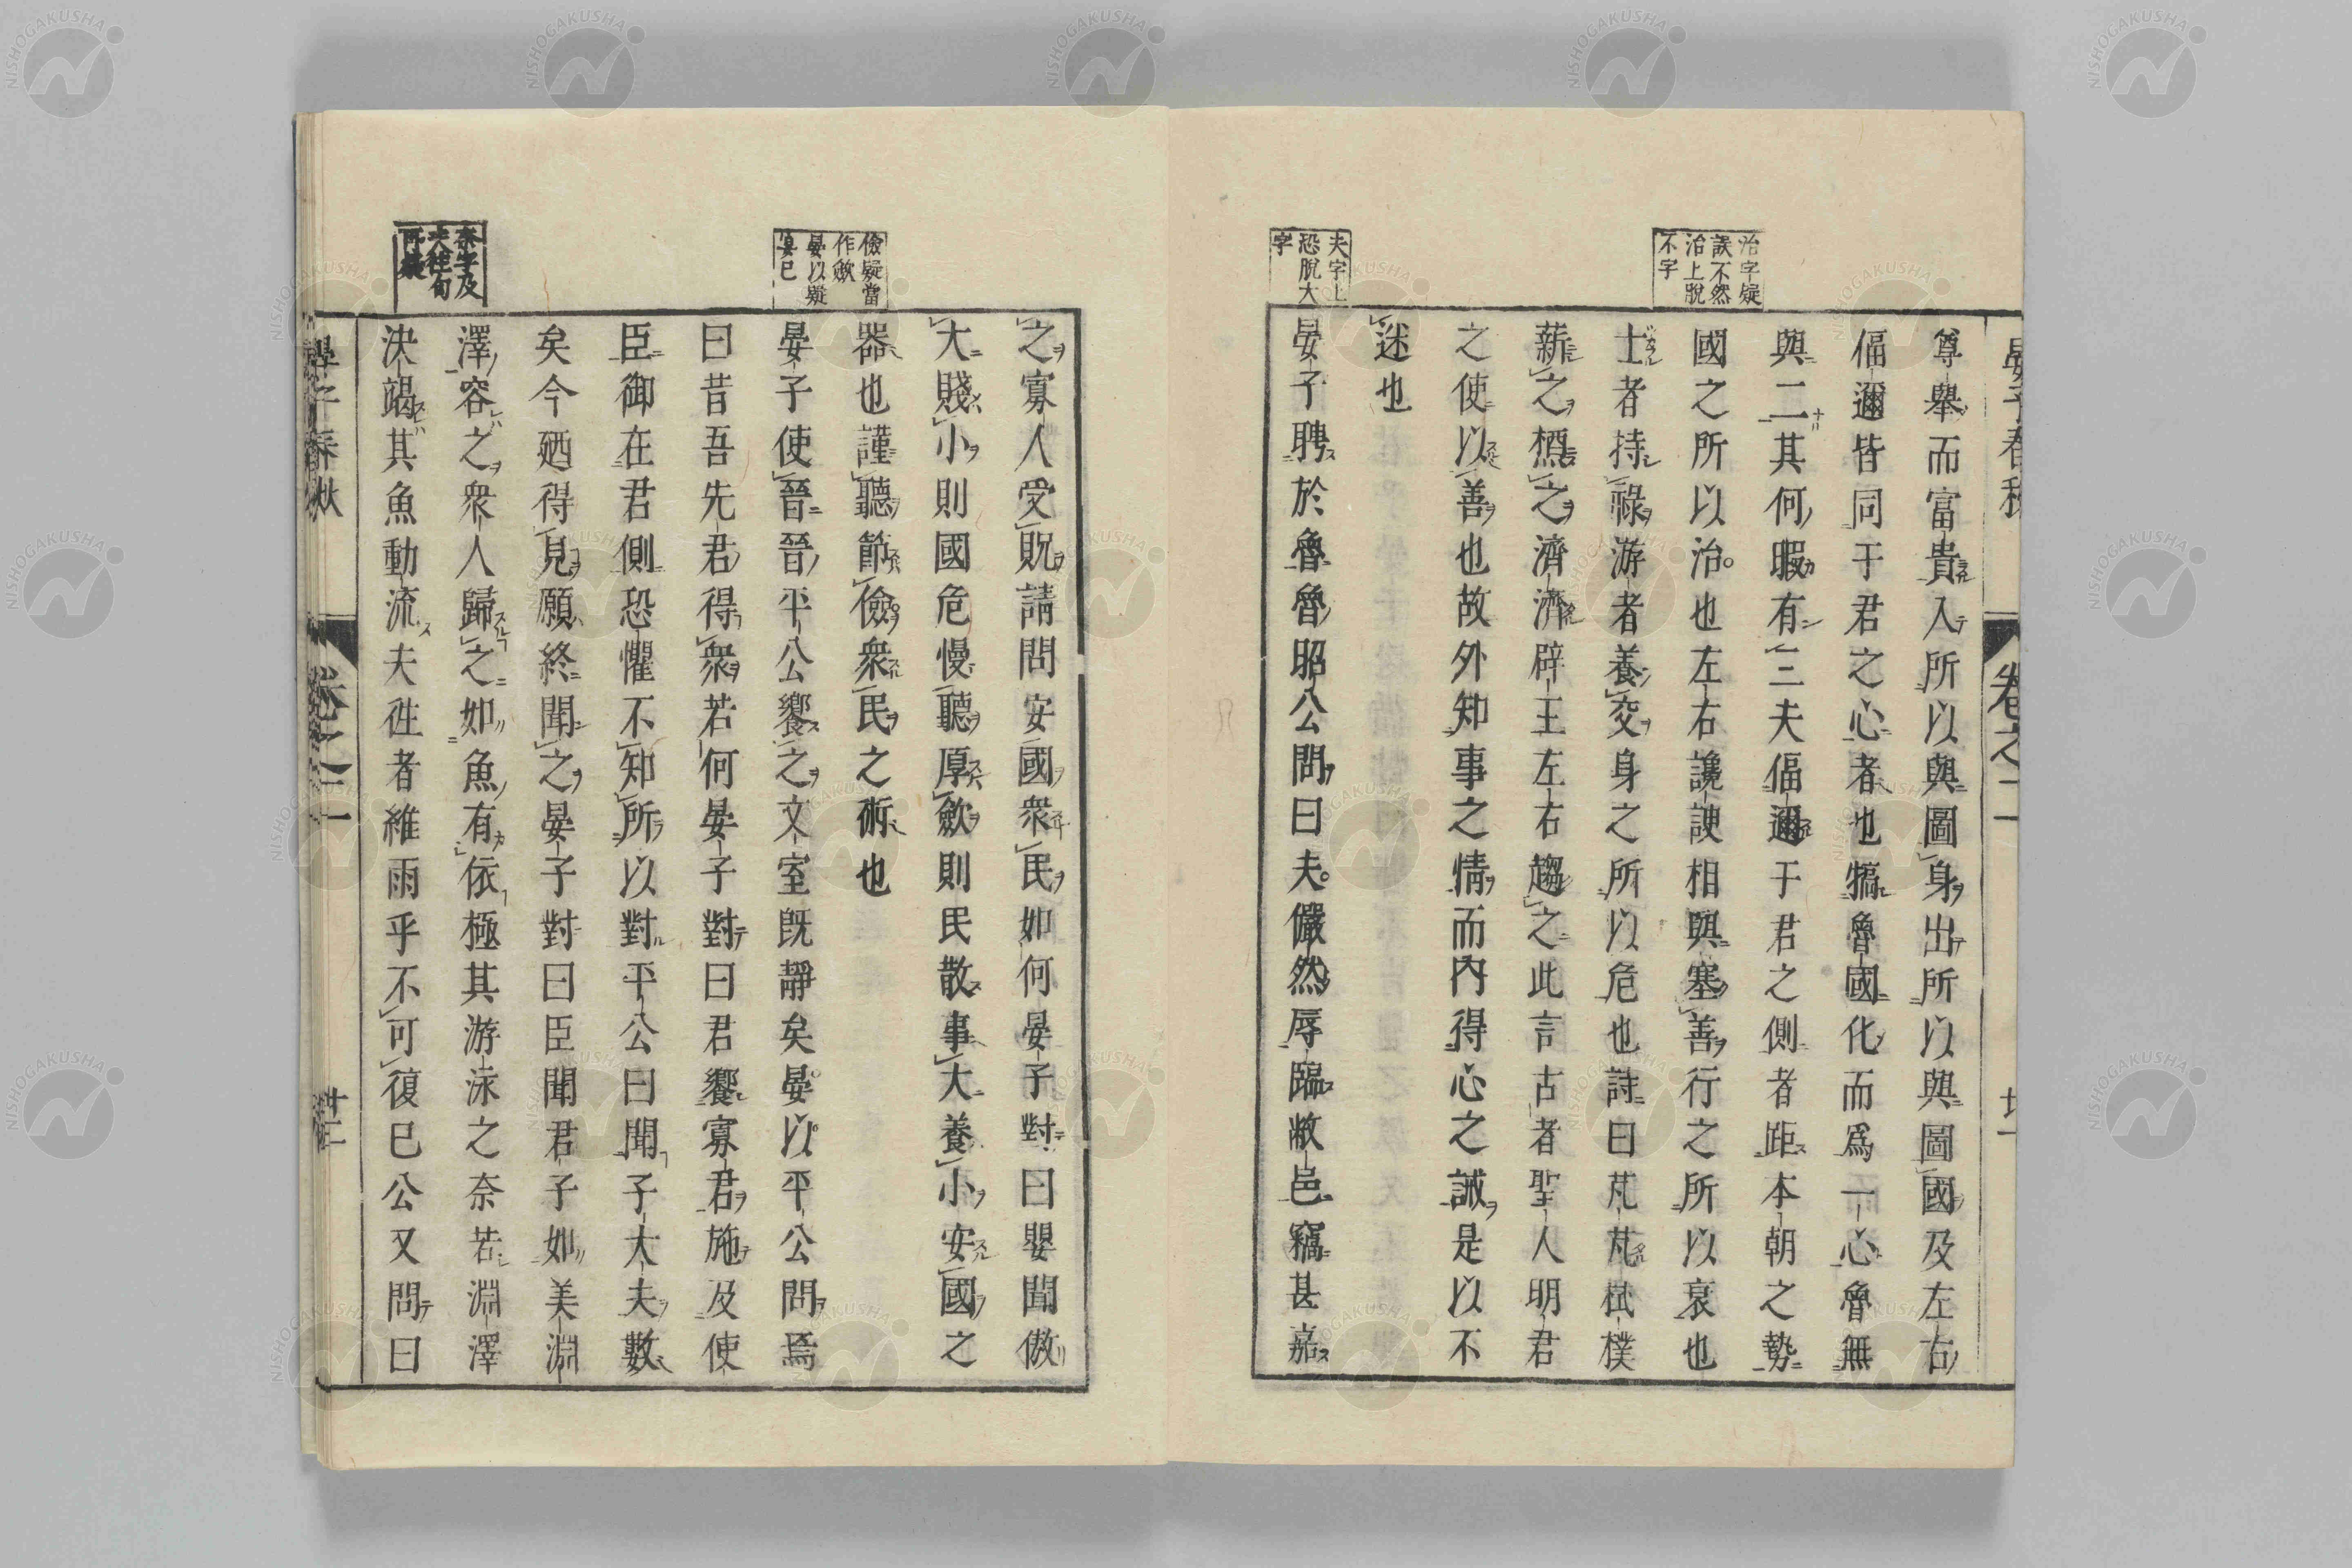 治字疑
誤不然
治上脫
不字
夫字上
恐脫大
字
晏子春秋
卷之二
尊舉而富貴入所以與圖身出所以與圖國及左右
偪邇皆同于君之心者也犒魯國化而爲一心魯無
與二其何暇有三夫偪邇于君之側者距本朝之勢
國之所以治也左右讒諛相與塞善行之所以衰也
士者持祿游者養交身之所以危也詩曰芃芃棫樸
薪之槱之濟濟辟王左右趨之此言古者聖人明君
之使以善也故外知事之情而內得心之誠是以不
迷也
晏子聘於魯魯昭公問曰夫儼然辱臨敝邑竊甚嘉
儉疑當
作歛
晏以疑
宴已
奈字及
夫往句
可疑
之寡人受貺請問安國衆民如何晏子對曰嬰聞傲
大賤小則國危慢聽厚歛則民散事大養小安國之
器也謹聽節儉衆民之術也
晏子使晉晉平公饗之文室既靜矣晏以平公問焉
曰昔吾先君得衆若何晏子對曰君饗寡君施及使
臣御在君側恐懼不知所以對平公曰聞子大夫數
矣今廼得見願終聞之晏子對曰臣聞君子如美淵
澤容之衆人歸之如魚有依極其游泳之奈若淵澤
決竭其魚動流夫徃者維雨乎不可復已公又問曰
晏子春秋
卷之二